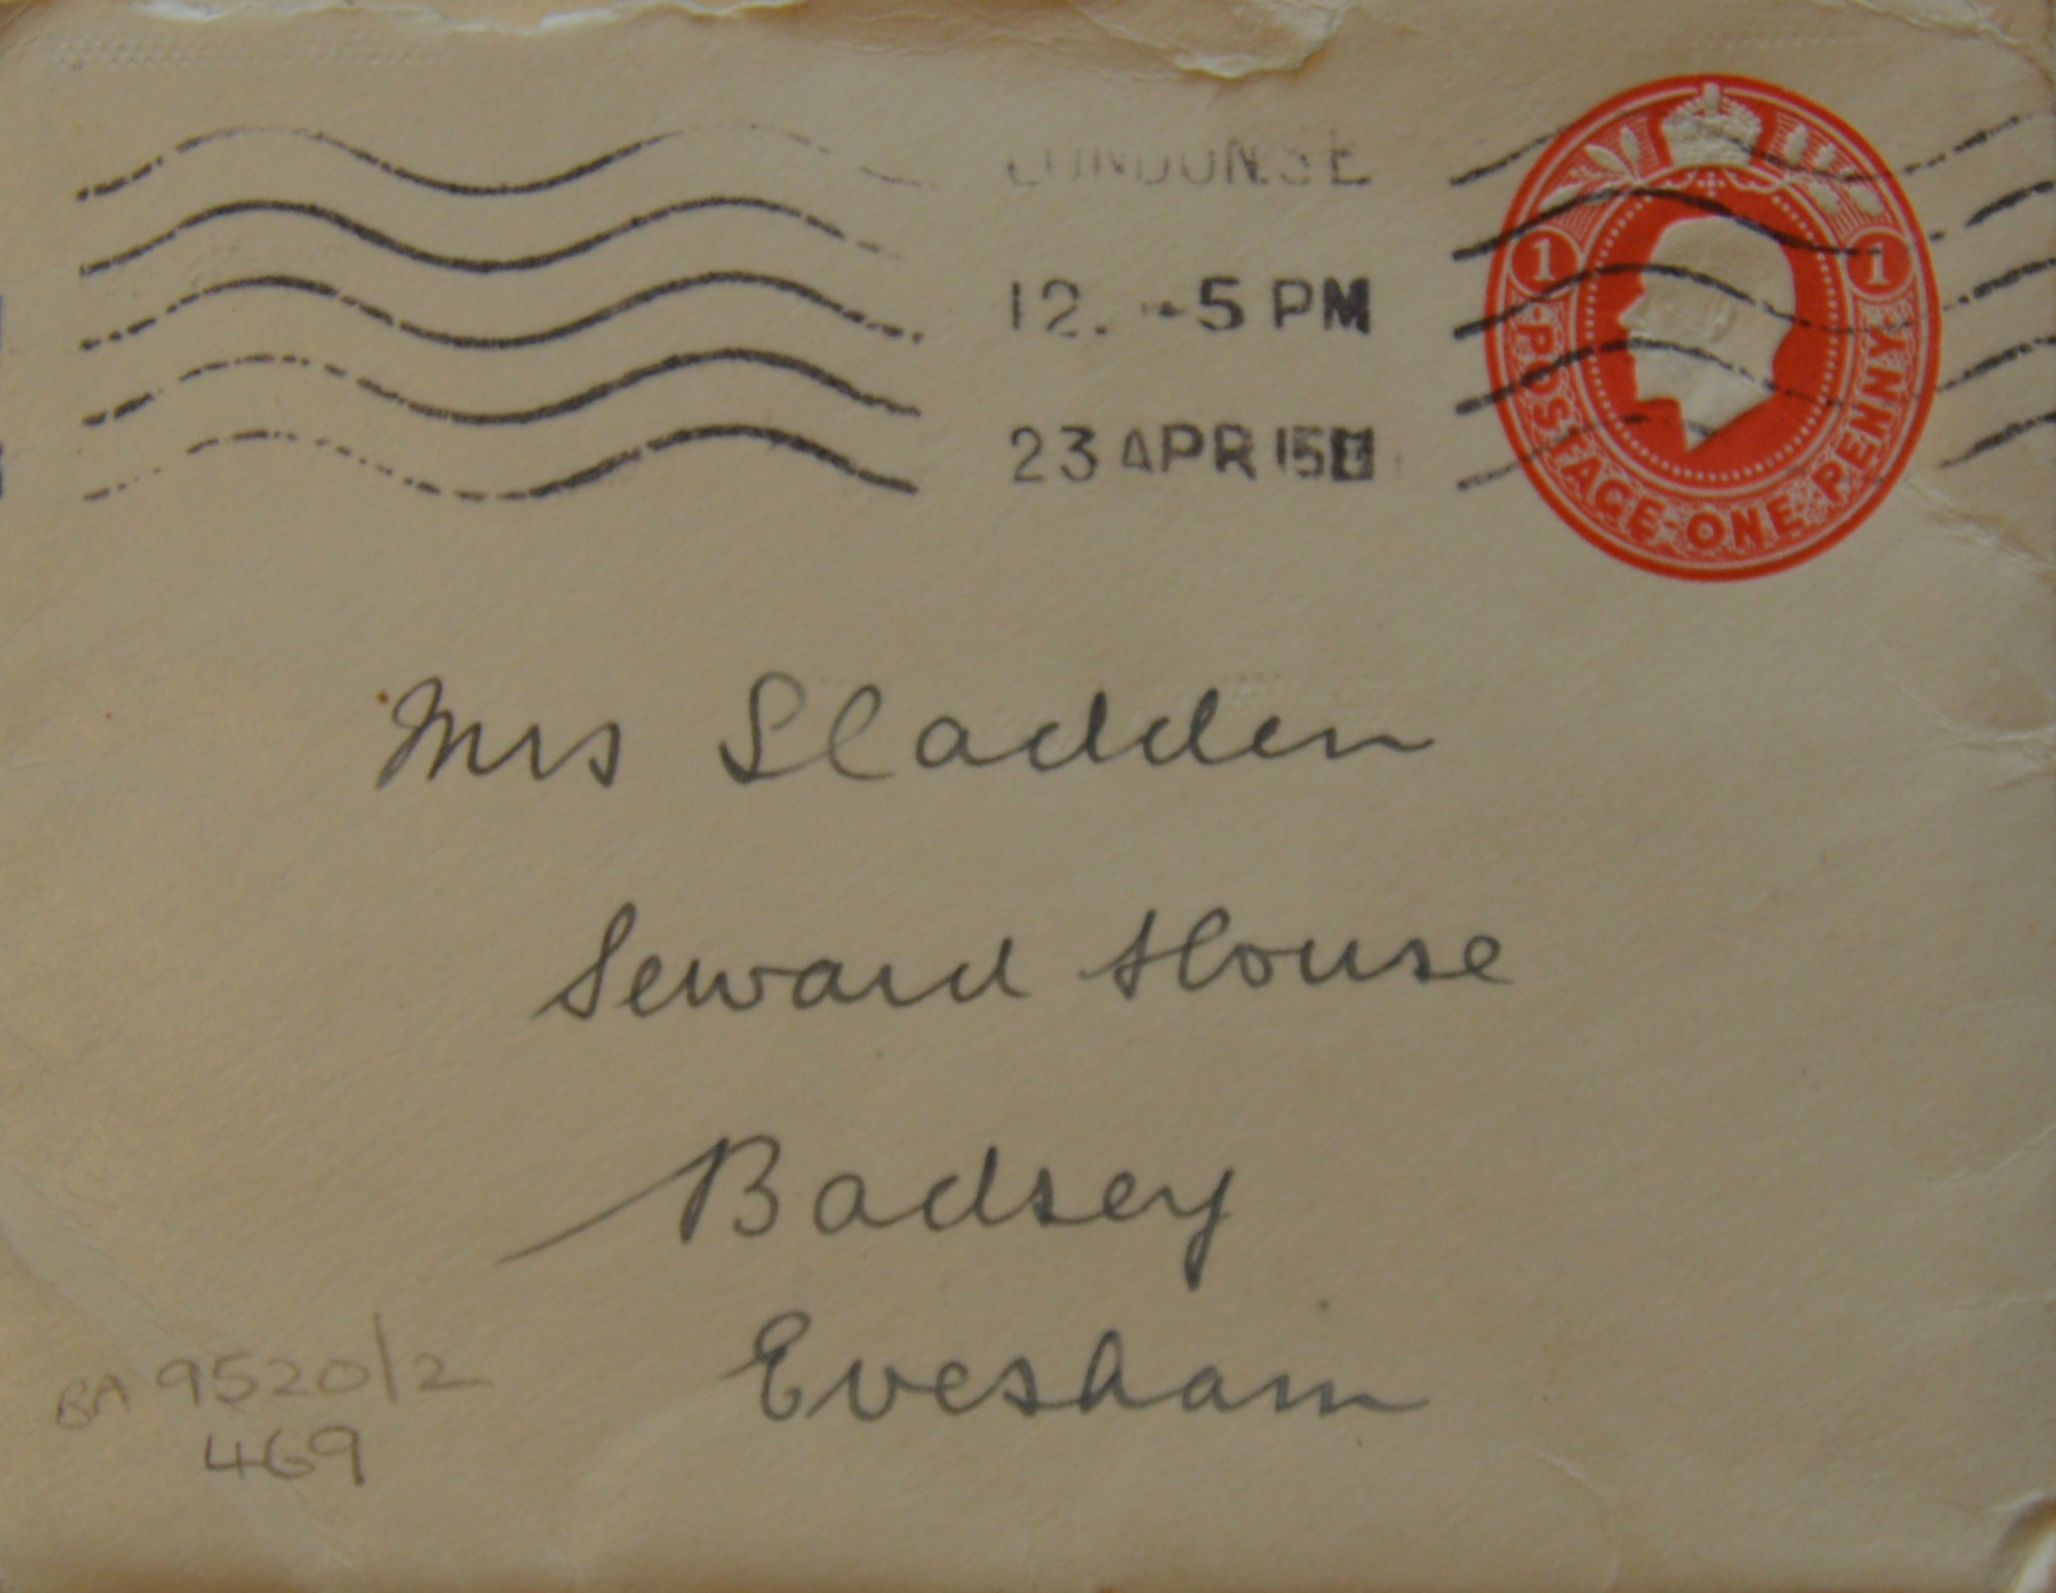 LONDON.S.E
12. -5 PM
23 APR 15
1 1
POSTAGE·ONE·PENNY
Mrs Sladden
Seward House
Badsey
Evesham
BA 9520/2
469